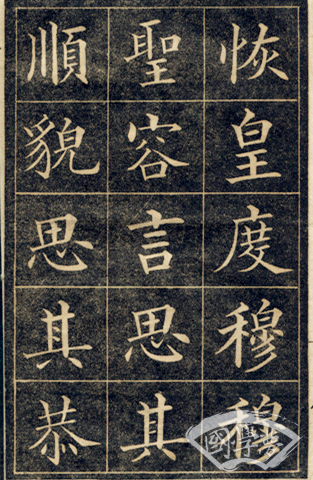 恢皇度穆穆
聖容言思其
順貌思其恭
國學